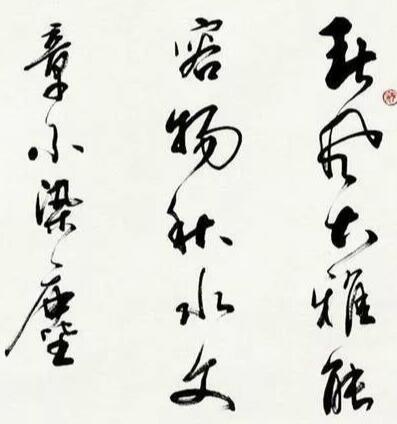 春风大雅能
容物秋水文
章不染尘